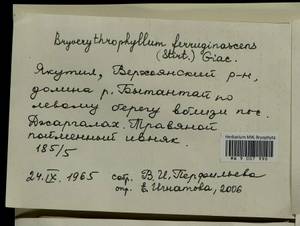 Bryoerythrophyllum ferruginascens
(Stirt.) Giac.
Якутия, Верхоянский р-н,
долина р. Бытантай по
левому берегу вблизи пос.
Джаргалах. Травяной
пойменный ивняк.
185/5
24.IX.1965 собр. В.И. Перфильева
опр. Е. Игнатова, 2006
Herbarium MW, Bryophyta
MW 9 007 990